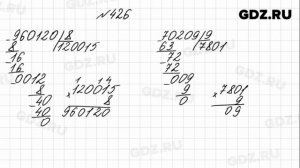 GDZ.RU
№426
960120|8
8 |120015
16
16
0012
8
40
40
0
1 4
120015
× 8
960120
70209|9
63 |7801
72
72
009
9
0
×7801
9
09